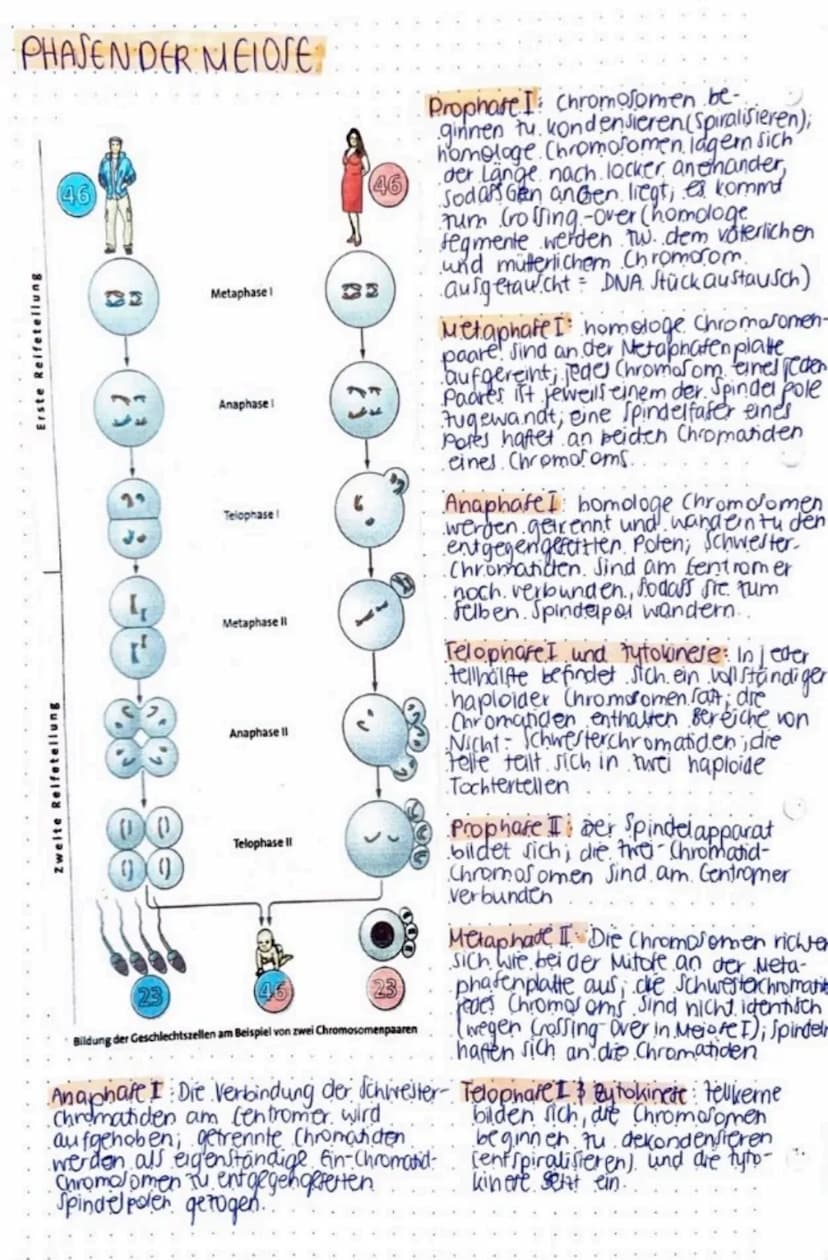 PHASEN DER MEIOSE
46
46
Erste Reifeteilung
Metaphase I
Anaphase I
Telophase I
Zweite Reifeteilung
Metaphase II
Anaphase II
Telophase II
23
46
23
Bildung der Geschlechtszellen am Beispiel von zwei Chromosomenpaaren
Prophase I: Chromosomen be-
ginnen zu kondensieren (Spiralisieren);
homologe Chromosomen lagern sich
der Länge nach locker aneinander,
sodass Gen an Gen liegt; es kommt
zum Crossing-over (homologe
Segmente werden zw. dem väterlichen
und mütterlichem Chromosom
ausgetauscht = DNA Stückaustausch)
Metaphase I: homologe Chromosomen-
paare sind an der Metaphasenplatte
aufgereiht; jedes Chromosom eines jeden
Paares ist jeweils einem der Spindelpole
zugewandt; eine Spindelfaser eines
Poles haftet an beiden Chromatiden
eines Chromosoms.
Anaphase I: homologe Chromosomen
werden getrennt und wandern zu den
entgegengesetzten Polen; Schwester-
Chromatiden sind am Centromer
noch verbunden, sodass sie zum
selben Spindelpol wandern.
Telophase I und Zytokinese: In jeder
Zellhälfte befindet sich ein vollständiger
haploider Chromosomensatz; die
Chromatiden enthalten Bereiche von
Nicht-Schwesterchromatiden; die
Zelle teilt sich in zwei haploide
Tochterzellen
Prophase II: Der Spindelapparat
bildet sich; die Zwei-Chromatid-
Chromosomen sind am Centromer
verbunden
Metaphase II: Die Chromosomen richten
sich wie bei der Mitose an der Meta-
phasenplatte aus; die Schwesterchromatid
jedes Chromosoms sind nicht identisch
(wegen Crossing Over in Meiose I); Spindel
haften sich an die Chromatiden
Anaphase I: Die Verbindung der Schwester-
chromatiden am Centromer wird
aufgehoben; getrennte Chromatiden
werden als eigenständige Ein-Chromatid-
Chromosomen zu entgegengesetzten
Spindelpolen gezogen.
Telophase I & Zytokinese: Zellkerne
bilden sich, die Chromosomen
beginnen zu dekondensieren
(entspiralisieren) und die Zyto-
kinese setzt ein.